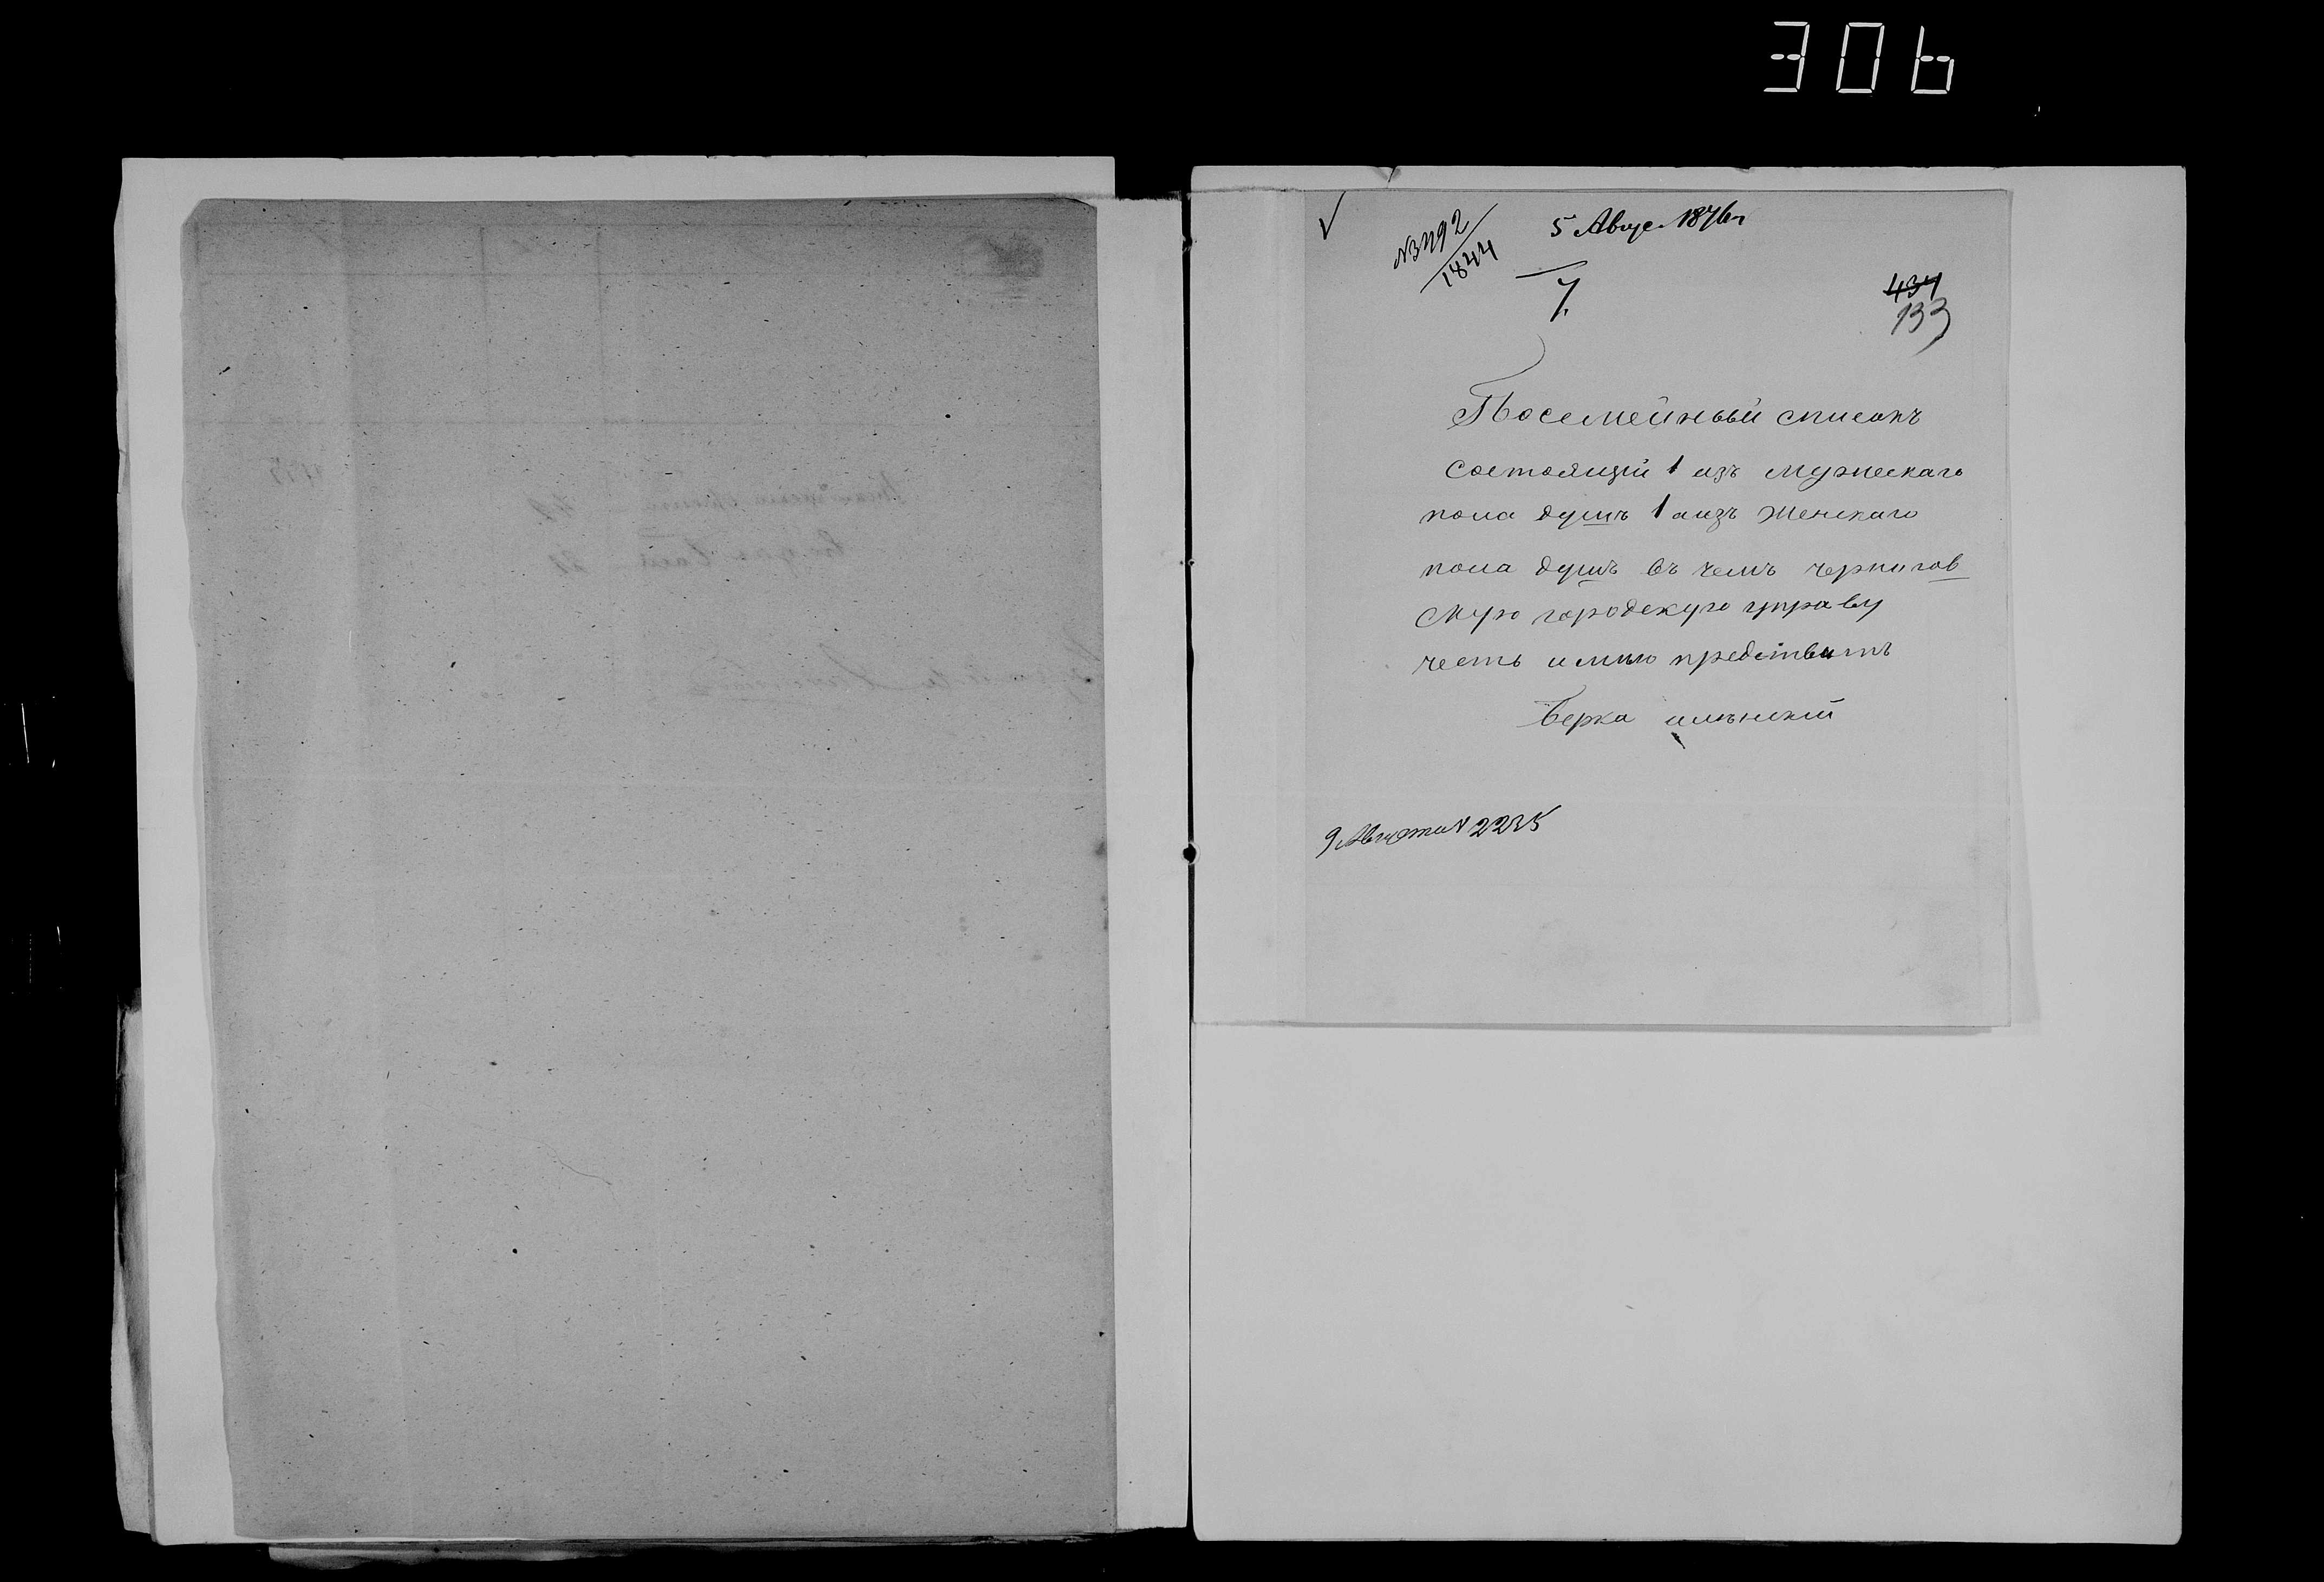 306
№3492/1844
5 Авгус. 1876 г
7.
434
133
Посемейный списокъ
состоящій 1 изъ мужескаго
пола душъ 1 аизъ женскаго
пола душъ въ чемъ чернигов
скую городскую управу
честь имѣю предствить
Берка
9 Августа № 2235